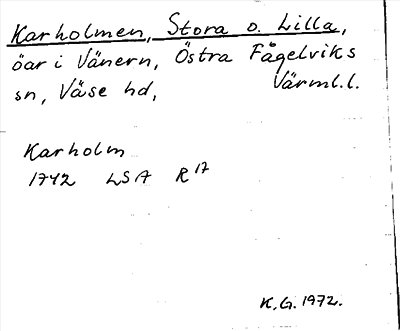 Karholmen, Stora o. Lilla,
öar i Vänern, Östra Fågelviks
sn, Väse hd, Värml.l.
Karholm
1742 LSA R17
K.G. 1972.